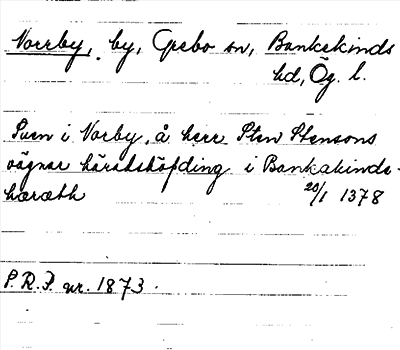 Norrby, by, Grebo sn, Bankekinds
hd, Ög. l.
Suen i Norby, å herr Sten Stensons
vägnar häradshöfding i Bankakinds-
hæræth 20/1 1378
P.R.P. nr. 1873.